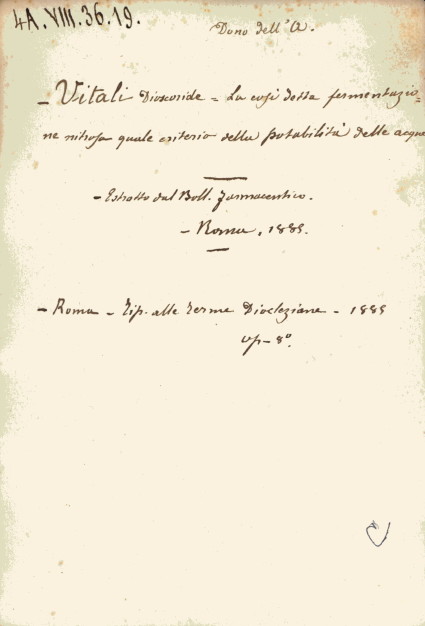 4A.VIII.36.19.
Dono dell'A.
- Vitali Dioscoride = La così detta fermentazio=
ne nitrosa quale criterio della potabilità delle acque
- Estratto dal Boll. farmaceutico.
- Roma, 1885.
- Roma - Tip. alle Terme Diocleziane - 1885
op- 8°.